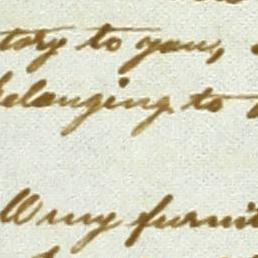 tory to you,
belonging to
All my furnit